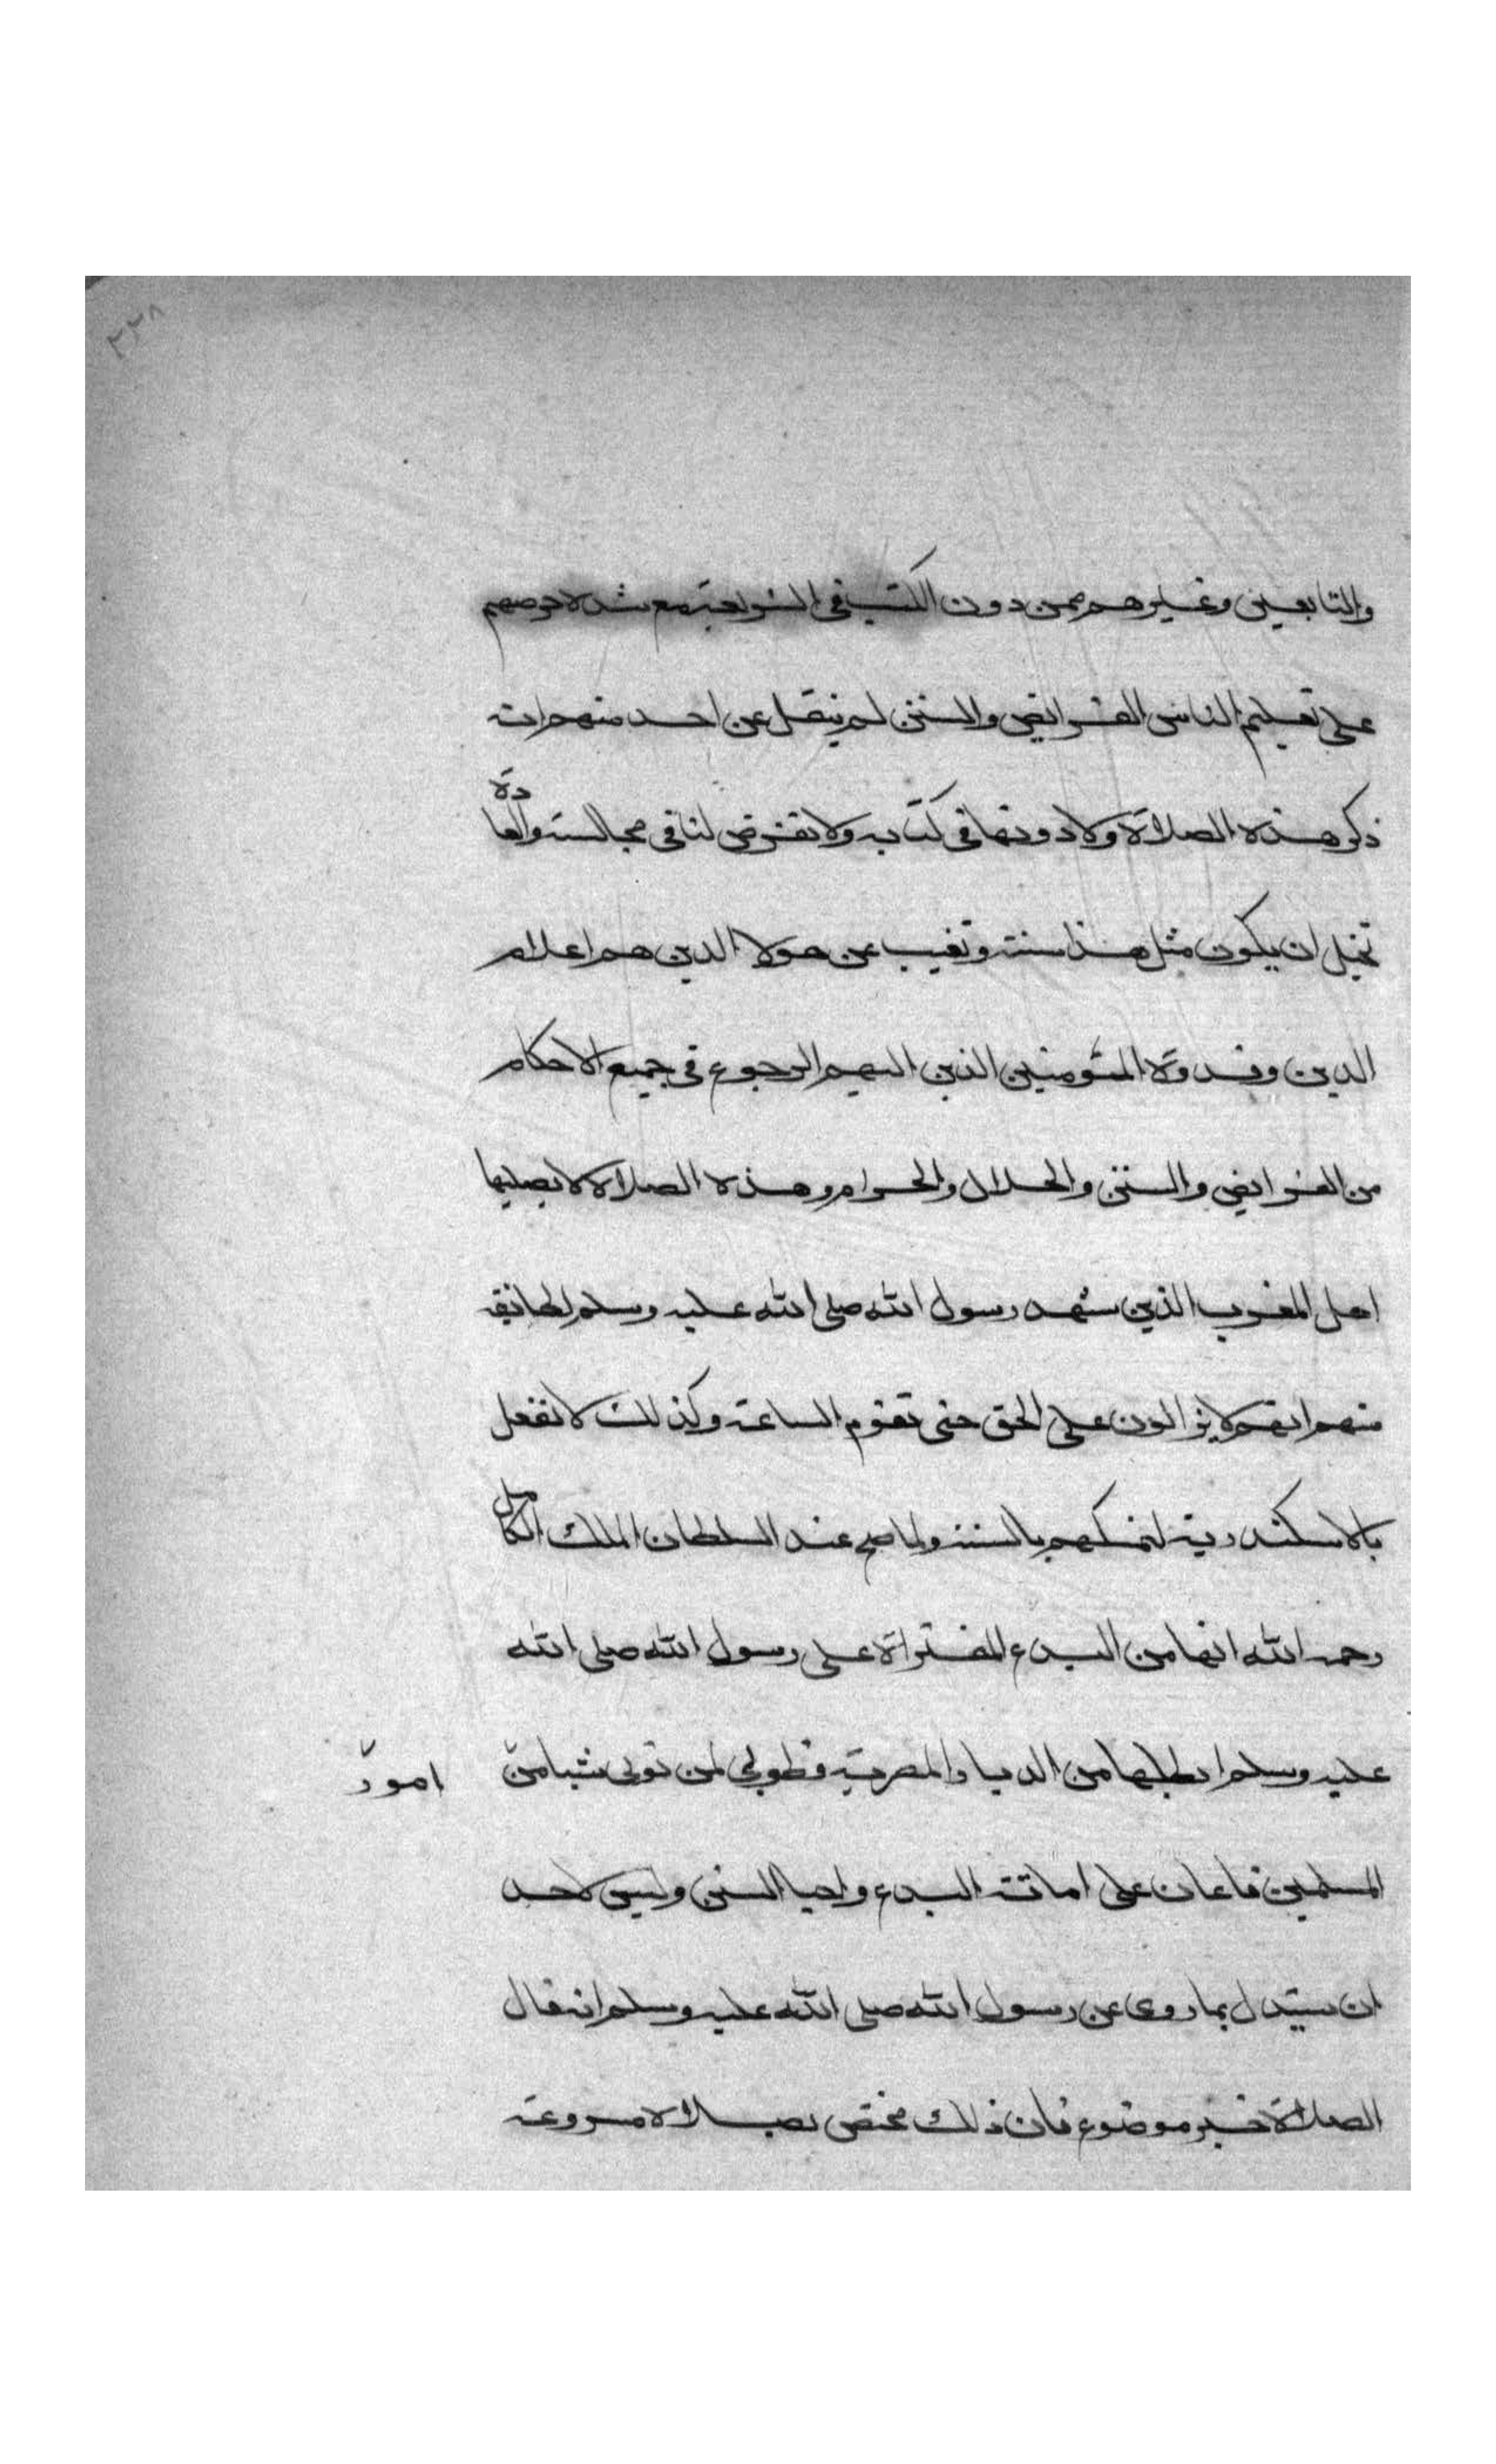 ٢٢٨
والتابعين وغيرهم ممن دون الكتب في الشريعة مع شدة حرصهم
على تعليم الناس الفرايض والسنن لم ينقل عن احد منهم ان
ذكر هذه الصلاة ولا دونها في كتابه ولا تعرض لنا في مجالسته والعادة
تحيل ان يكون مثل هذا سنة وتغيب عن هولا الدين هم اعلام
الدين وقدوة المؤمنين الذين اليهم الرجوع في جميع الاحكام
من الفرايض والسنن والحلال والحرام وهذه الصلاة لا يصليها
اهل المغرب الذين شهد رسول الله صلى الله عليه وسلم لطايفة
منهم انهم لا يزالون على الحق حتى تقوم الساعة وكذلك لا تفعل
بالاسكندرية لتمسكهم بالسنة ولما صح عند السلطان الملك الكامل
رحمه الله انها من البدع المفتراة على رسول الله صلى الله
عليه وسلم ابطلها من الديار المصرية فطوبى لمن تولى شيا من امور
المسلمين فاعان على اماتة البدع واحيا السنن وليس لاحد
ان يستدل بما روى عن رسول الله صلى الله عليه وسلم انه قال
الصلاة خير موضوع فان ذلك مختص بصلاة مسروعة